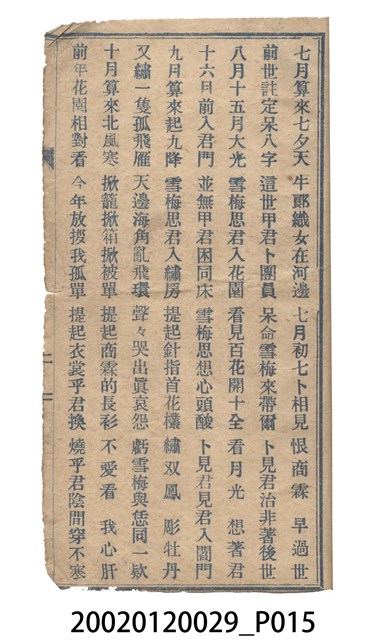 七月算來七夕天 牛郎織女在河邊 七月初七卜相見 恨商霖早過世
前世註定呆八字 這世甲君卜團員 呆命雪梅來帶爾 卜見君治非著後世
八月十五月大光 雪梅思君入花園 看見百花開十全 看月光想著君
十六月前入君門 並無甲君困同床 雪梅思想心頭酸 卜見君見君入閻門
九月算來起九降 雪梅思君入繡房 提起針指首花欉 繡双鳳彫牡丹
又繡一隻孤飛雁 天邊海角亂飛環 聲々哭出眞哀怨 虧雪梅與恁同一欵
十月算來北風寒 掀籠掀箱掀被單 提起商霖的長衫 不愛看我心肝
前年花園相對看 今年放拺我孤單 提起衣裳乎君換 燒乎君陰間穿不寒
20020120029_P015